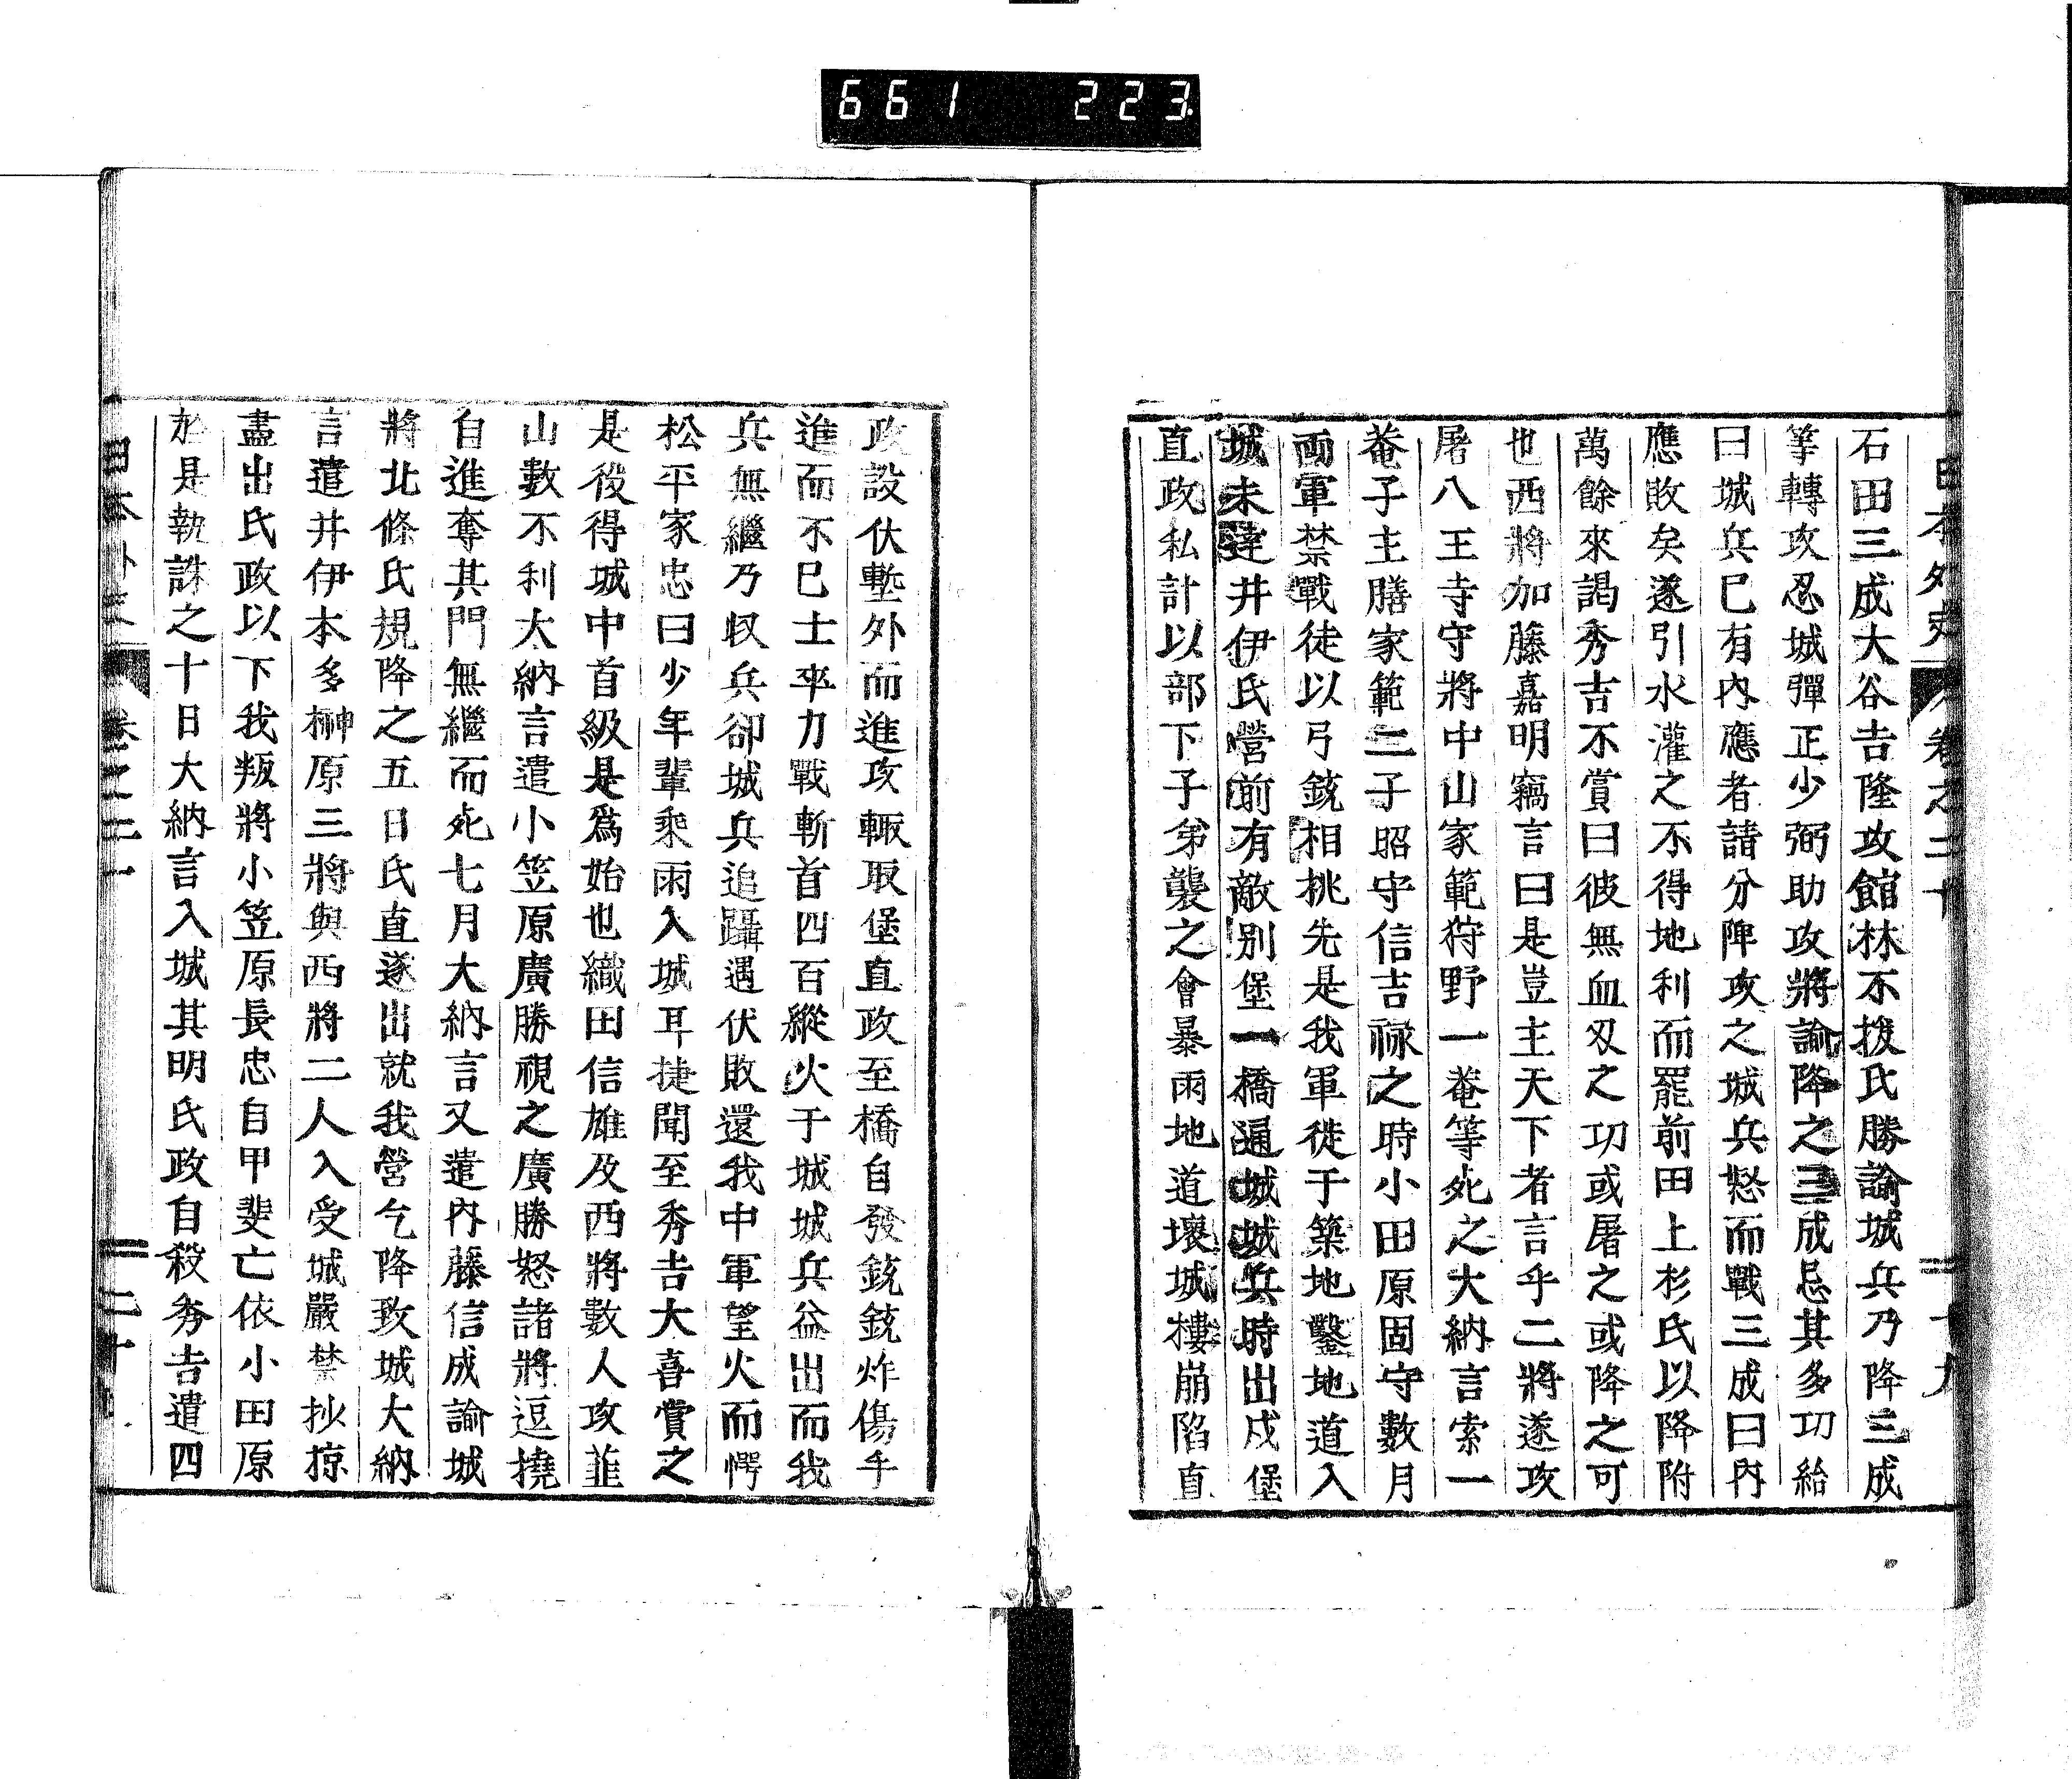 661 223
日本外史 卷之二十 十九
石田三成大谷吉隆攻館林不拔氏勝諭城兵乃降三成
等轉攻忍城彈正少弼助攻將諭降之三成忌其多功紿
曰城兵已有內應者諸分陴攻之城兵怒而戰三成曰內
應敗矣遂引水灌之不得地利而罷前田上杉氏以降附
萬餘來謁秀吉不賞曰彼無血刄之功或屠之或降之可
也西將加藤嘉明竊言曰是豈主天下者言乎二將遂攻
屠八王寺守將中山家範狩野一菴等死之大納言索一
菴子主膳家範二子昭守信吉祿之時小田原固守數月
兩軍禁戰徒以弓銃相挑先是我軍徙于築地鑿地道入
城未達井伊氏營前有敵別堡一橋通城城兵時出戍堡
直政私計以部下子弟襲之會暴雨地道壞城樓崩陷直
政設伏塹外而進攻輙取堡直政至橋自發銃銃炸傷手
進而不已士卒力戰斬首四百縱火于城城兵益出而我
兵無繼乃收兵卻城兵追躡遇伏敗還我中軍望火而愕
松平家忠曰少年輩乘雨入城耳捷聞至秀吉大喜賞之
是役得城中首級是爲始也織田信雄及西將數人攻韮
山數不利大納言遣小笠原廣勝視之廣勝怒諸將逗撓
自進奪其門無繼而死七月大納言又遣內藤信成諭城
將北條氏規降之五日氏直遂出就我營乞降致城大納
言遣井伊本多榊原三將與西將二人入受城嚴禁抄掠
盡出氏政以下我叛將小笠原長忠自甲斐亡依小田原
於是執誅之十日大納言入城其明氏政自殺秀吉遣四
日本外史 卷之二十 二十